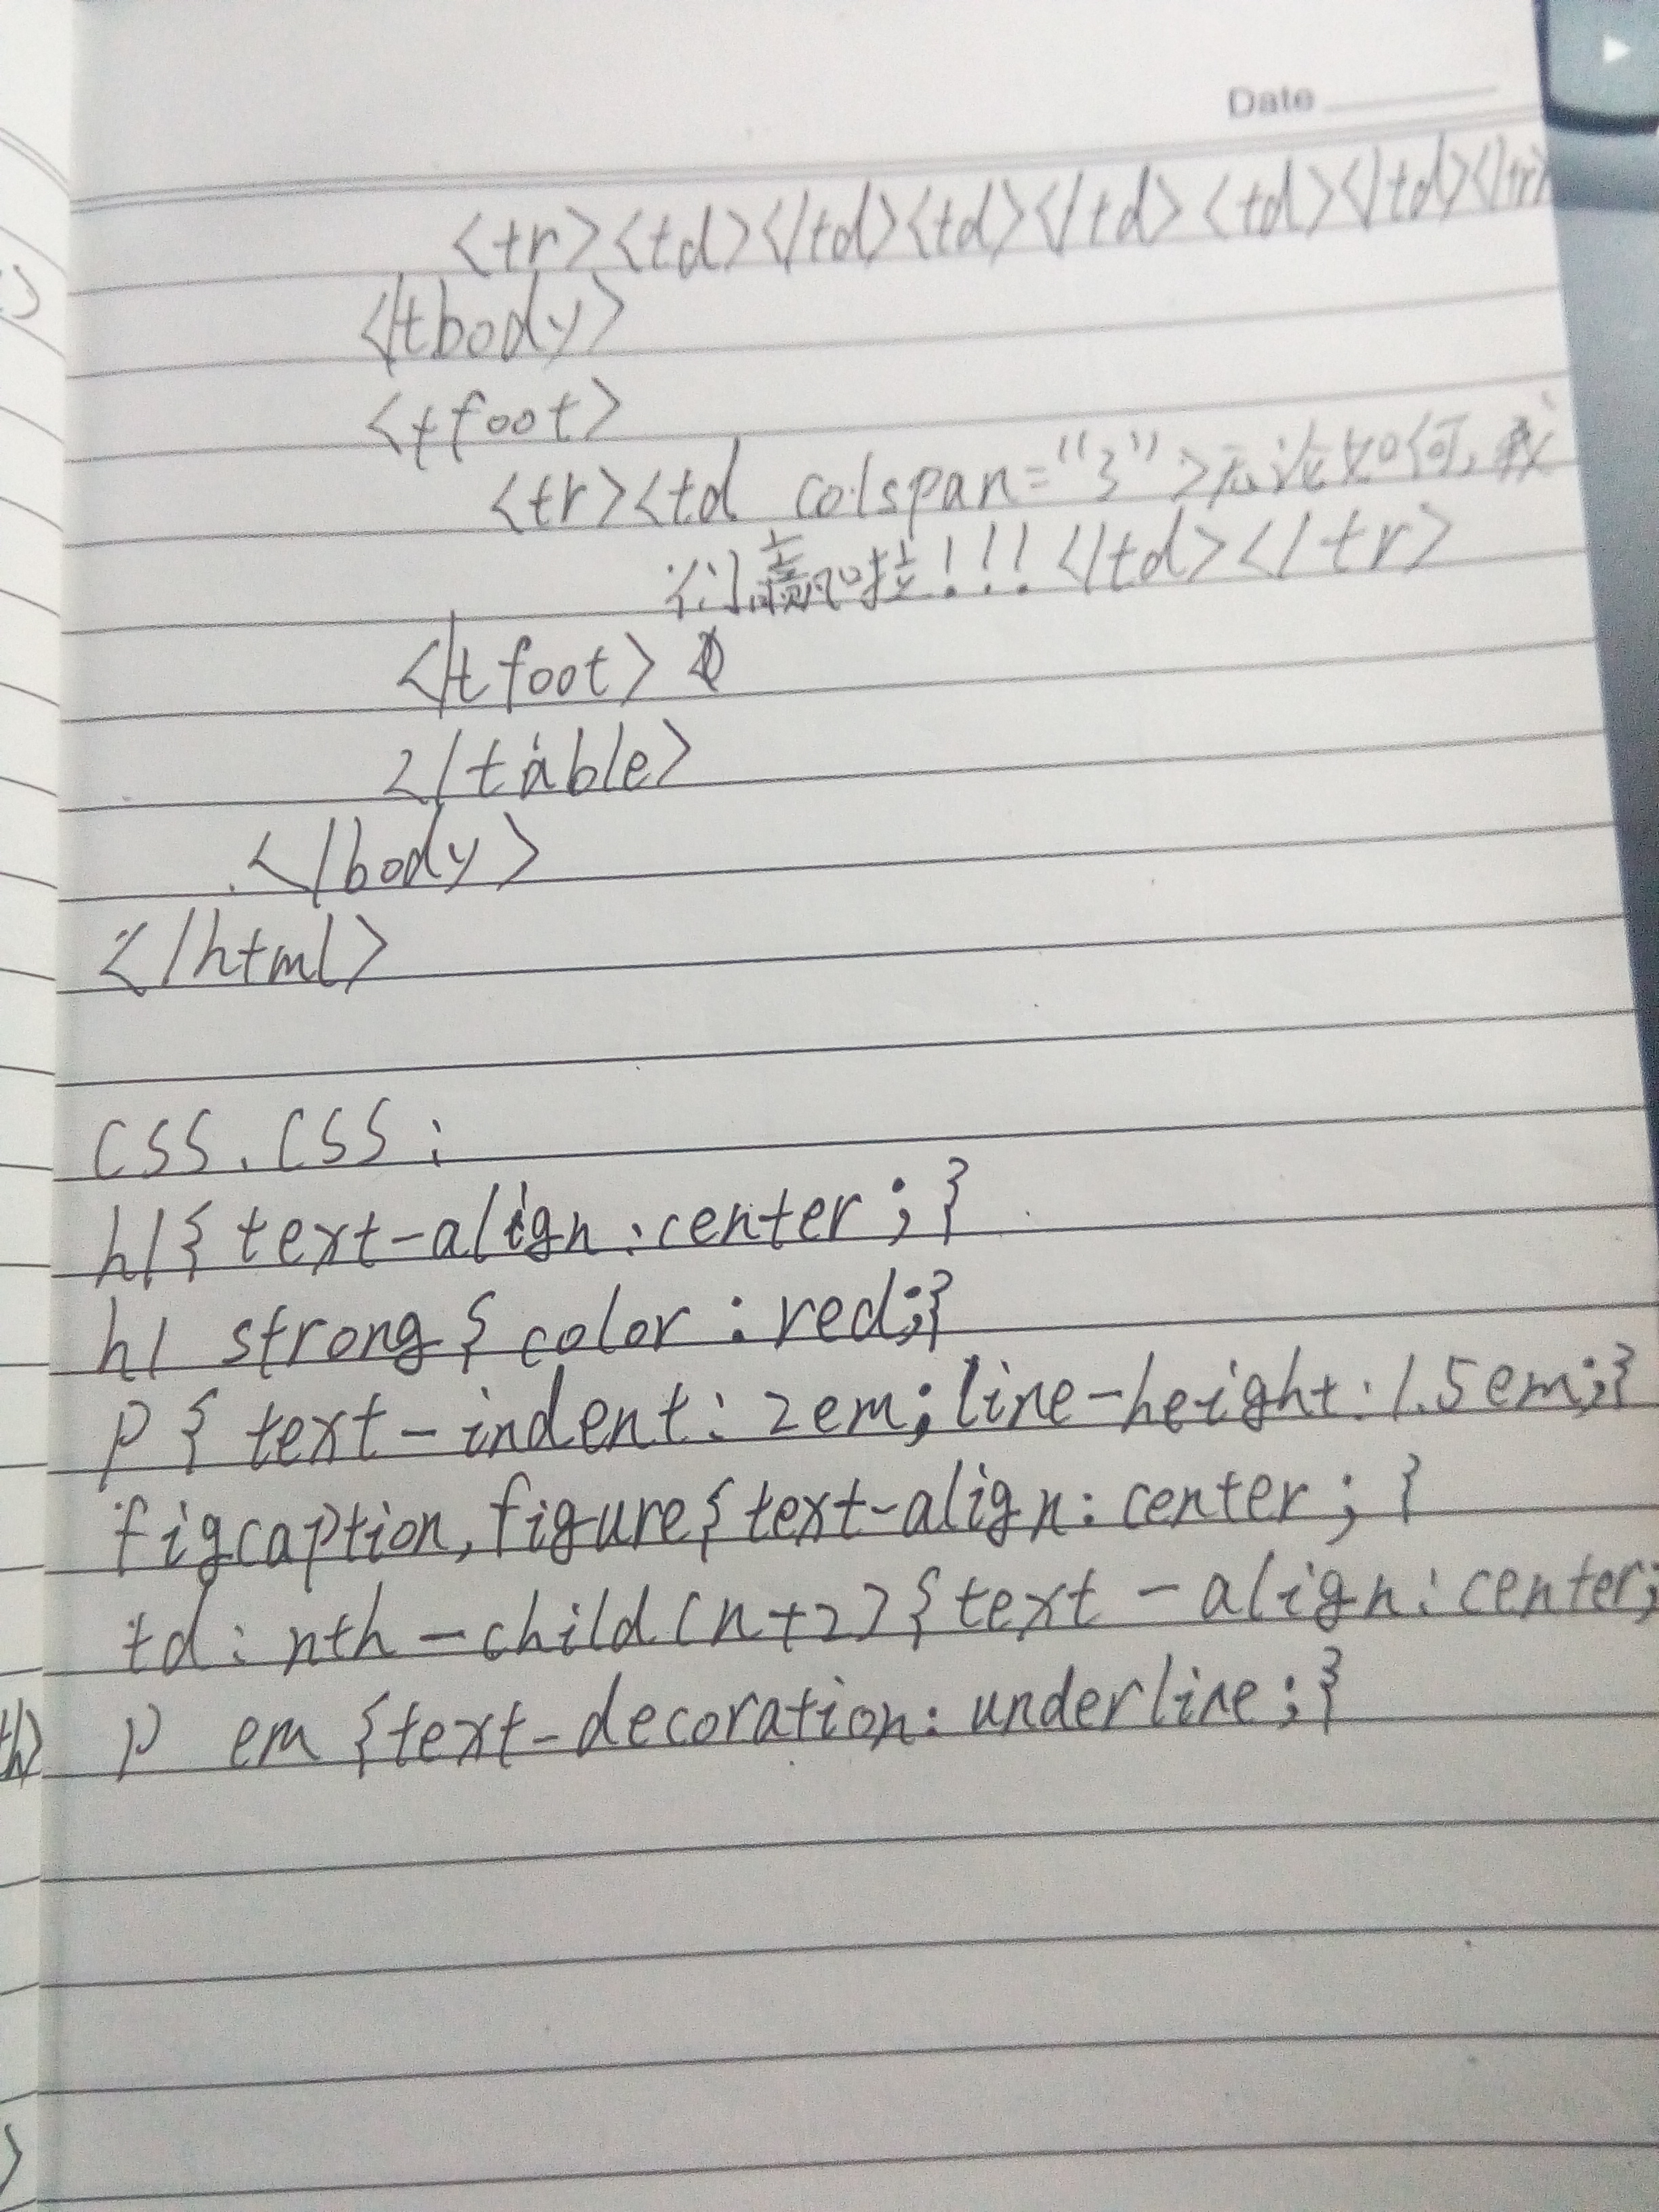 Date
<tr><td></td><td></td><td></td></tr>
</tbody>
<tfoot>
<tr><td colspan="3">无论如何,我
们赢啦!!!</td></tr>
</tfoot>
</table>
</body>
</html>
css.css:
h1{text-align:center;}
h1 strong{color:red;}
p{text-indent:2em;line-height:1.5em;}
figcaption,figure{text-align:center;}
td:nth-child(n+2){text-align:center;
p em{text-decoration:underline;}